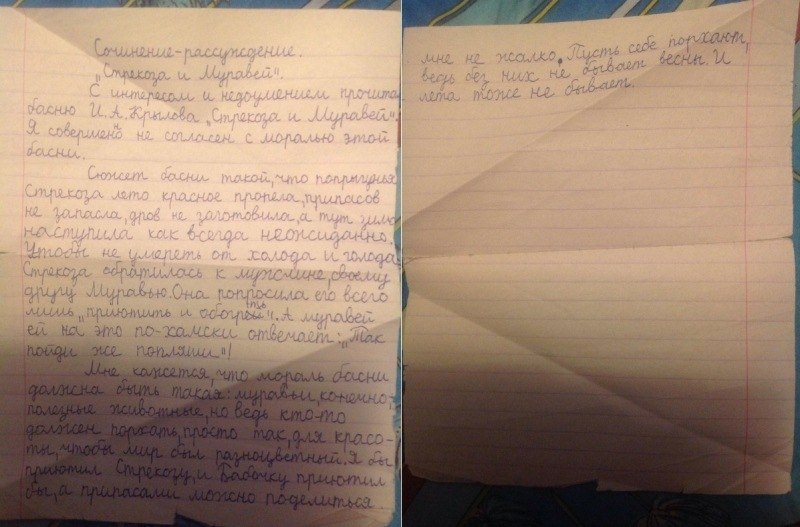 Сочинение-рассуждение.
„Стрекоза и Муравей".
С интересом и недоумением прочитал
басню И.А.Крылова „Стрекоза и Муравей".
Я совершенно не согласен с моралью этой
басни.
Сюжет басни такой, что попрыгунья
Стрекоза лето красное пропела, припасов
не запасла, дров не заготовила, а тут зима
наступила как всегда неожиданно.
Чтобы не умереть от холода и голода
Стрекоза обратилась к мужчине, своему
другу Муравью. Она попросила его всего
лишь „приютить и обогреть". А муравей
ей на это по-хамски отвечает: „Так
пойди же попляши"!
Мне кажется, что мораль басни
должна быть такая: муравьи, конечно,
полезные животные, но ведь кто-то
должен порхать, просто так, для красо-
ты, чтобы мир был разноцветный. Я бы
приютил Стрекозу, и Бабочку приютил
бы, а припасами можно поделиться.
мне не жалко. Пусть себе порхают,
ведь без них не бывает весны. И
лета тоже не бывает.